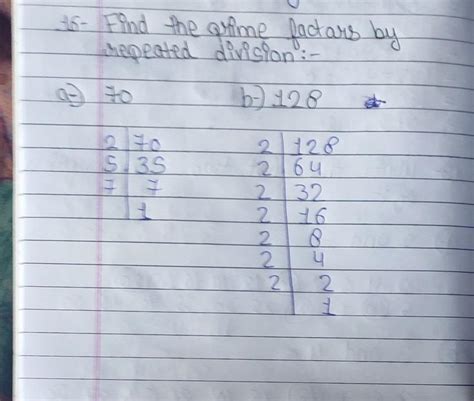 16- Find the prime factors by
repeated division:-
a-) 70 b-) 128
2 70 2 128
5 35 2 64
7 7 2 32
1 2 16
2 8
2 4
2 2
1